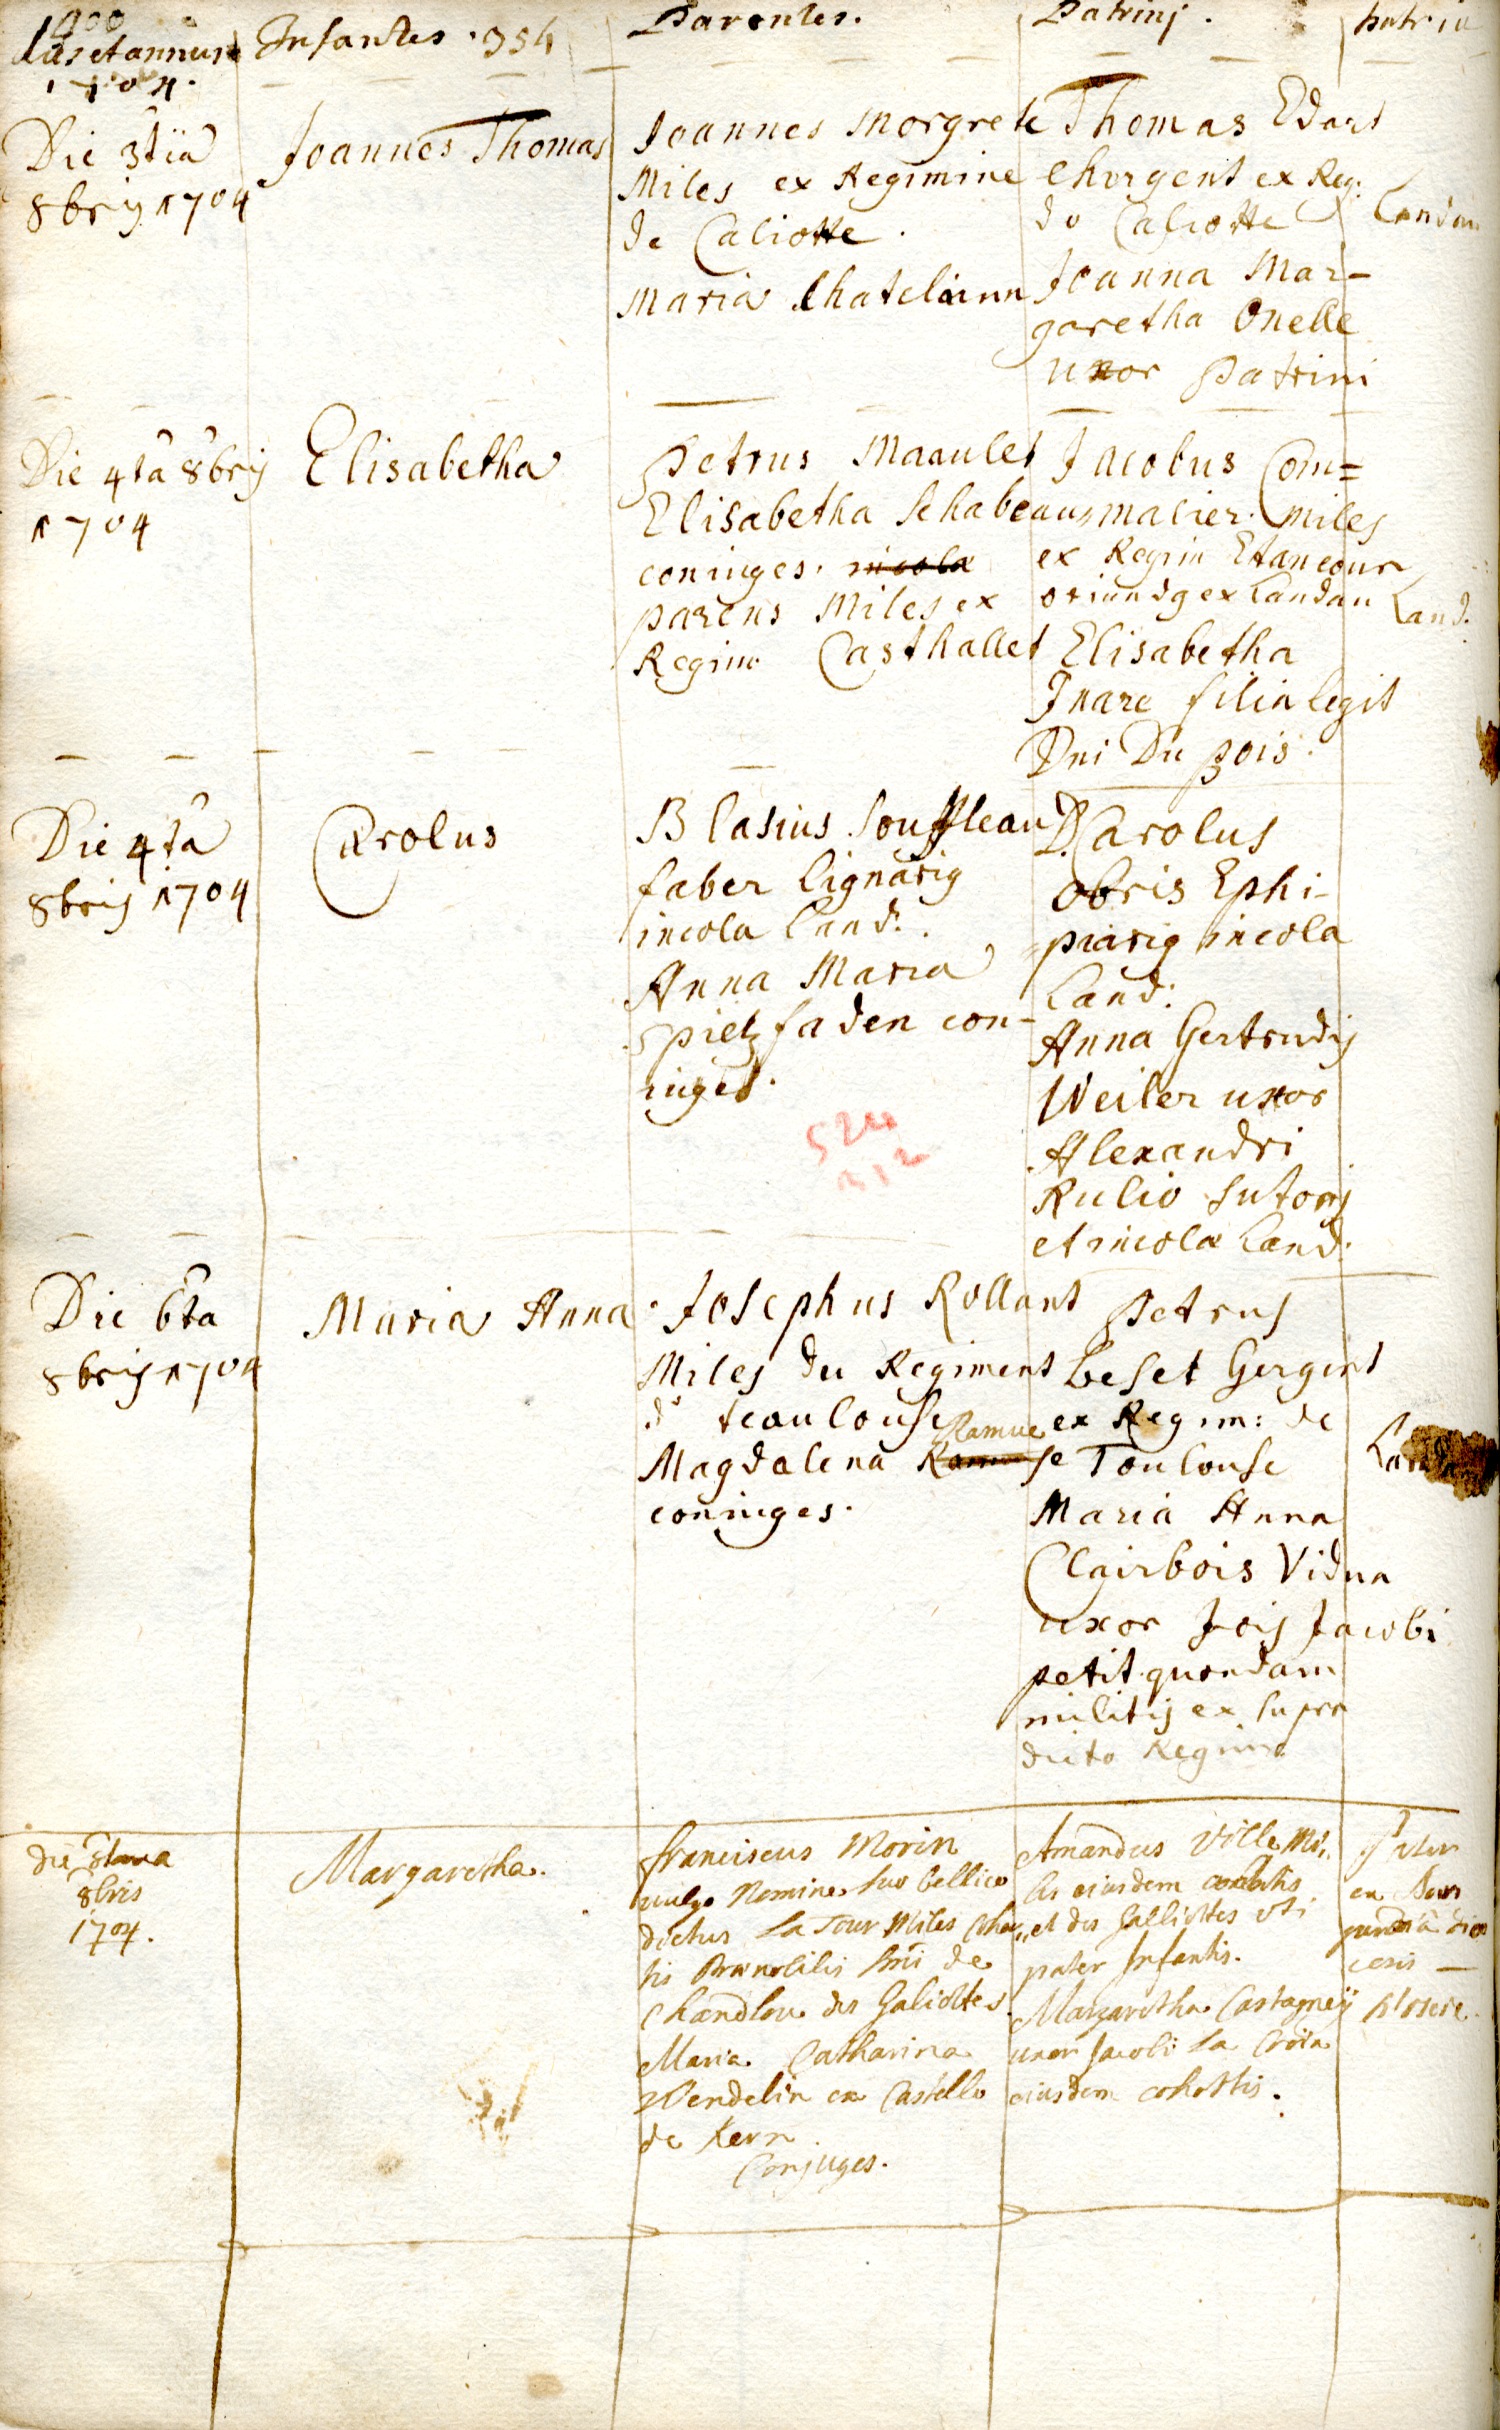 400
dies et annus
1704.
Infantes. 354
Parentes.
Patrinj.
patria
Die 3tia
8brij 1704
Joannes Thomas
Joannes Morgrete
Miles ex Regimine
de Caliotte.
Maria Chatelainn
Thomas Edart
Chergent ex Reg:
de Caliotte
Joanna Mar-
garetha Onelle
uxor Patrini
Landau
Die 4ta 8brij
1704
Elisabetha
Petrus Maaulet
Elisabetha Schabeaus
coniuges. incola
parens Miles ex
Regim. Casthallet
Jacobus Com=
malier. Miles
ex Regim Etancour
oriundg ex Landau
Elisabetha
Inare filia legit
Dni Du pois.
Land.
Die 4ta
8brij 1704
Carolus
Blasius Souffleau
faber lignarig
incola Land:.
Anna Maria
Spielzfaden con-
iuges.
D. Carolus
Obris Ephi-
piarig incola
Land:
Anna Gertrudis
Weiler uxor
Alexandri
Rulio Sutoris
et incola Land.
524
312
Die 6ta
8brij 1704
Maria Anna.
Josephus Rollant
Miles du Regiment
d' teaulouse
Ramue
Magdalena se
coniuges.
Petrus
Leset Gergent
ex Regim: de
Toulouse
Maria Anna
Clairbois Vidua
uxor Jois Jacobi
petit quondam
militis ex supra
dicto Regim
Land
die 8tava
8bris
1704.
Margaretha.
franciscus Morin
vulgo Nomine suo bellico
dictus La Tour Miles Cohor
tis Prænobilis Dni de
Chandlou des Galiottes.
Maria Catharina
Wendelin ex Castello
de Kern
Conjuges.
Amandus Ville Mi,,
les eiusdem cohortis
et des Galliottes uti
pater Infantis.
Margaretha Castagney
uxor Jacobi La Croix
eiusdem cohortis.
Pater
ex